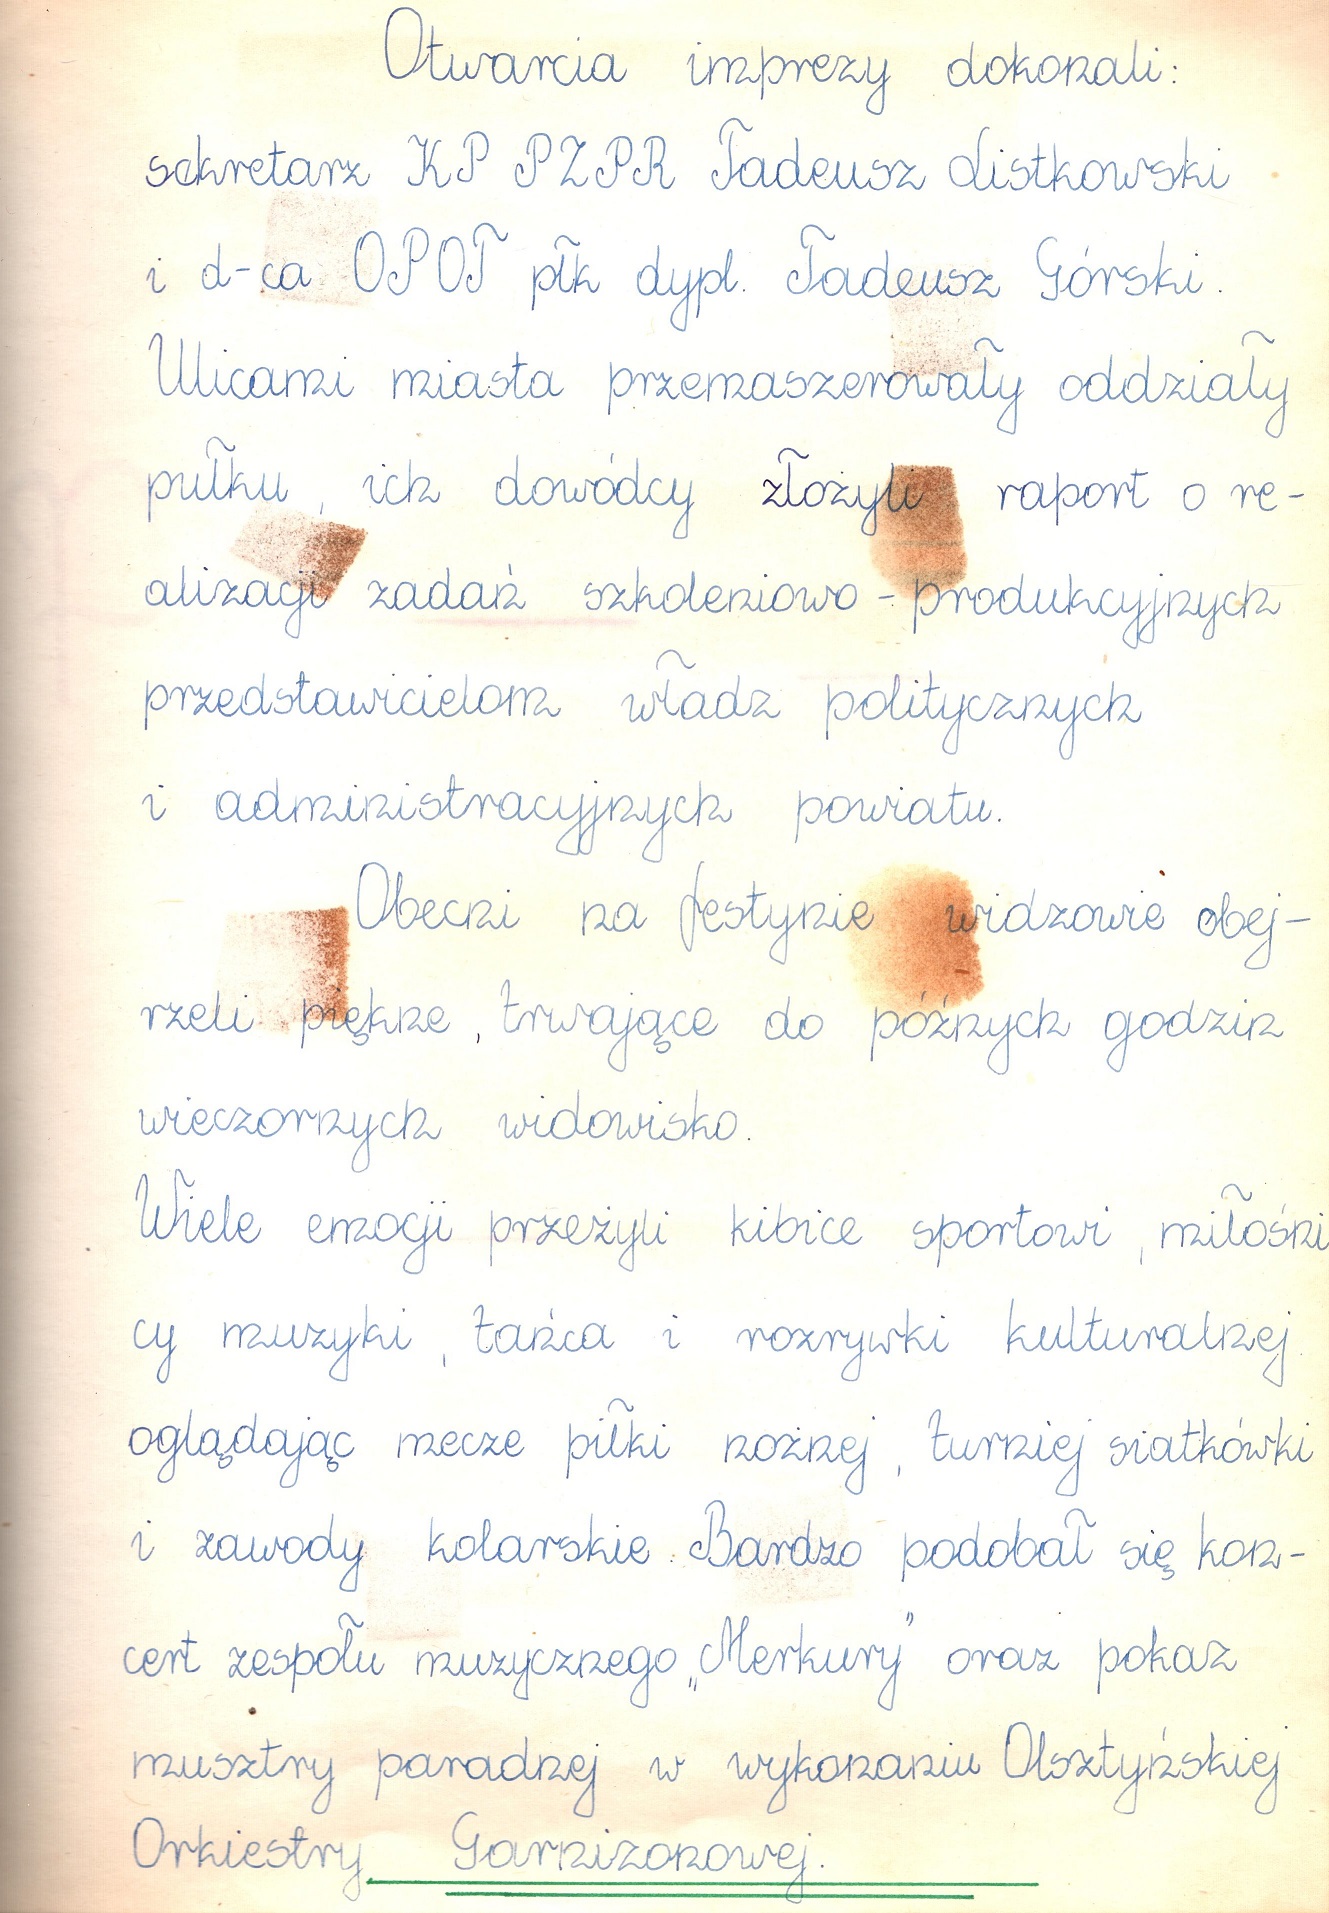 Otwarcia imprezy dokonali:
sekretarz KP PZPR Tadeusz Listkowski
i d-ca OPOT płk dypl. Tadeusz Górski.
Ulicami miasta przemaszerowały oddziały
pułku, ich dowódcy złożyli raport o re-
alizacji zadań szkoleniowo - produkcyjnych
przedstawicielom władz politycznych
i administracyjnych powiatu.
Obecni na festynie widzowie obej-
rzeli piękne, trwające do późnych godzin
wieczornych widowisko.
Wiele emocji przeżyli kibice sportowi, miłośni
cy muzyki, tańca i rozrywki kulturalnej
oglądając mecze piłki nożnej, turniej siatkówki
i zawody kolarskie. Bardzo podobał się kon-
cert zespołu muzycznego „Merkury" oraz pokaz
musztry paradnej w wykonaniu Olsztyńskiej
Orkiestry Garnizonowej.